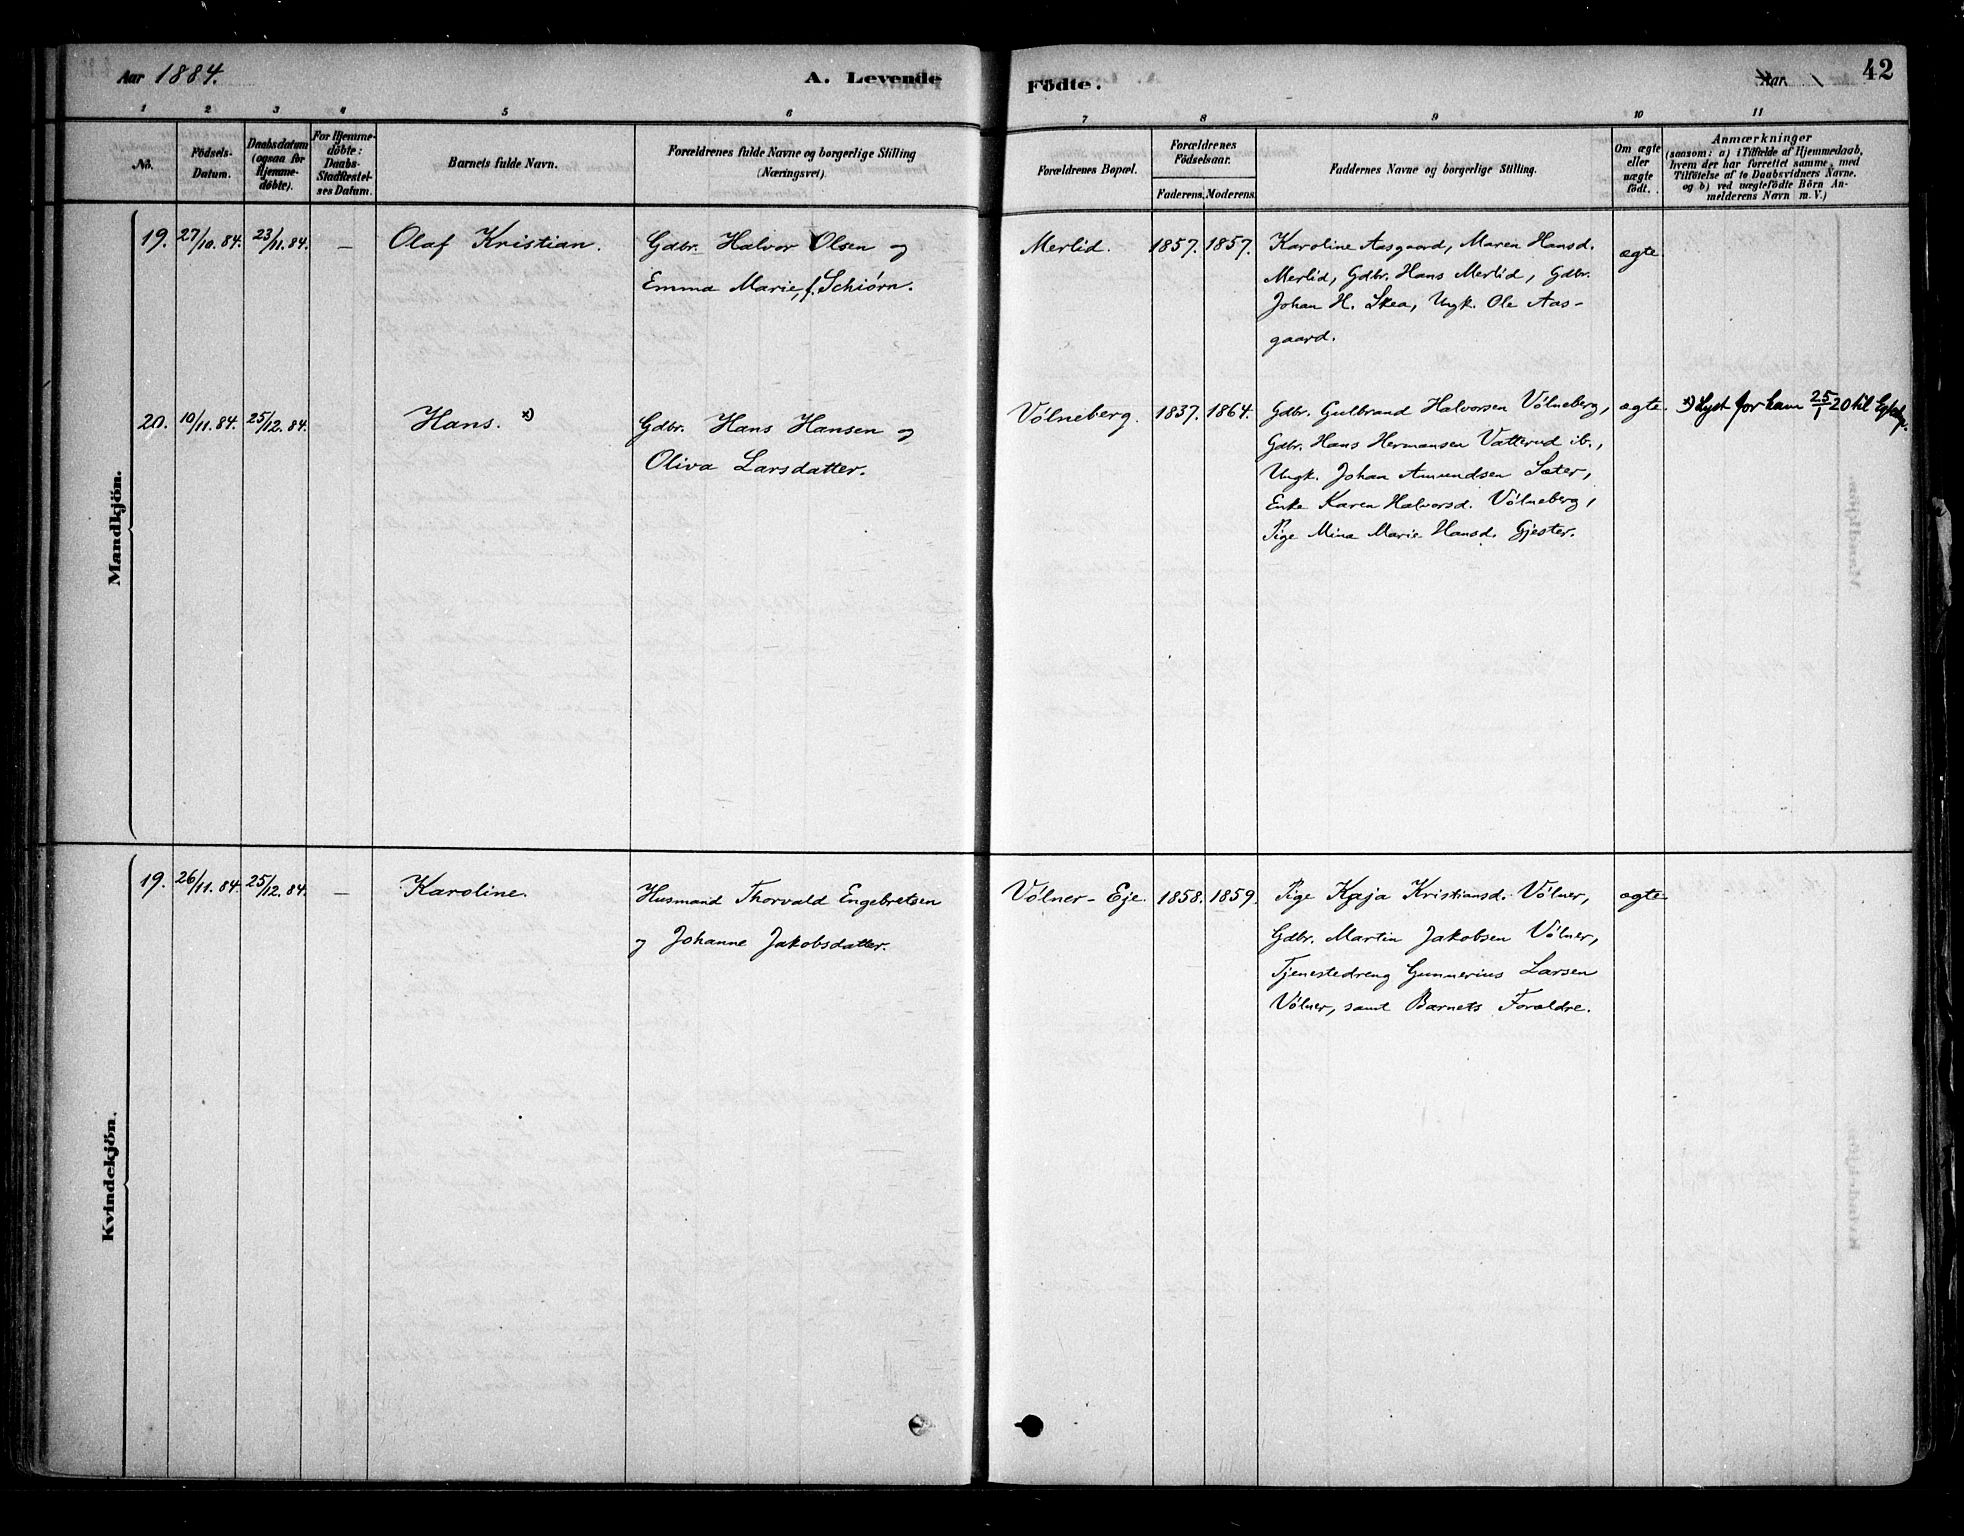 Aar 1884.
A. Levende
Födte.
Aar
42
1
2
3
4
5
6
7
8
9
10
11
No.
Födsels-
Datum.
Daabsdatum
(ogsaa for
Hjemme-
döbte).
For Hjemme-
döbte:
Daabs-
Stadfæstel-
ses Datum.
Barnets fulde Navn.
Forældrenes fulde Navne og borgerlige Stilling
(Næringsvei).
Forældrenes Bopæl.
Forældrenes
Födselsaar.
Faderens.
Moderens.
Faddernes Navne og borgerlige Stilling.
Om ægte
eller
uægte
födt.
Anmærkninger
(saasom: a) i Tilfælde af Hjemmedaab,
hvem der har forrettet samme, med
Tilföielse af to Daabsvidners Navne.
og b) ved uægtefödte Börn An-
melderens Navn m. V.)
Mandkjön.
19. 27/10. 84. 23/11. 84. — Olaf Kristian. Gdbr. Halvor Olsen og
Emma Marie, f. Schiørn.
Merlid. 1857. 1857. Karoline Aasgaard, Maren Hansd.
Merlid, Gdbr. Hans Merlid, Gdbr.
Johan H. Skea, Ungk. Ole Aas-
gaard.
ægte
20. 10/11. 84. 25/12. 84. Hans. x) Gdbr. Hans Hansen og
Oliva Larsdatter.
Vølneberg. 1837. 1864. Gdbr. Gulbrand Halvorsen Vølneberg,
Gdbr. Hans Hermansen Vatterud ib.,
Ungk. Johan Amundsen Sæter,
Enke Karen Halvorsd. Vølneberg,
Pige Mina Marie Hansd. Gjester.
ægte. x) Lyst for ham 25/1 20 til
Kvindekjön.
19. 26/11. 84. 25/12. 84. — Karoline. Husmand Thorvald Engebretsen
og Johanne Jakobsdatter.
Vølner-Eje. 1858. 1859. Pige Kaja Kristiansd. Vølner,
Gdbr. Martin Jakobsen Vølner,
Tjenestedreng Gunnerius Larsen
Vølner, samt Barnets Forældre.
ægte